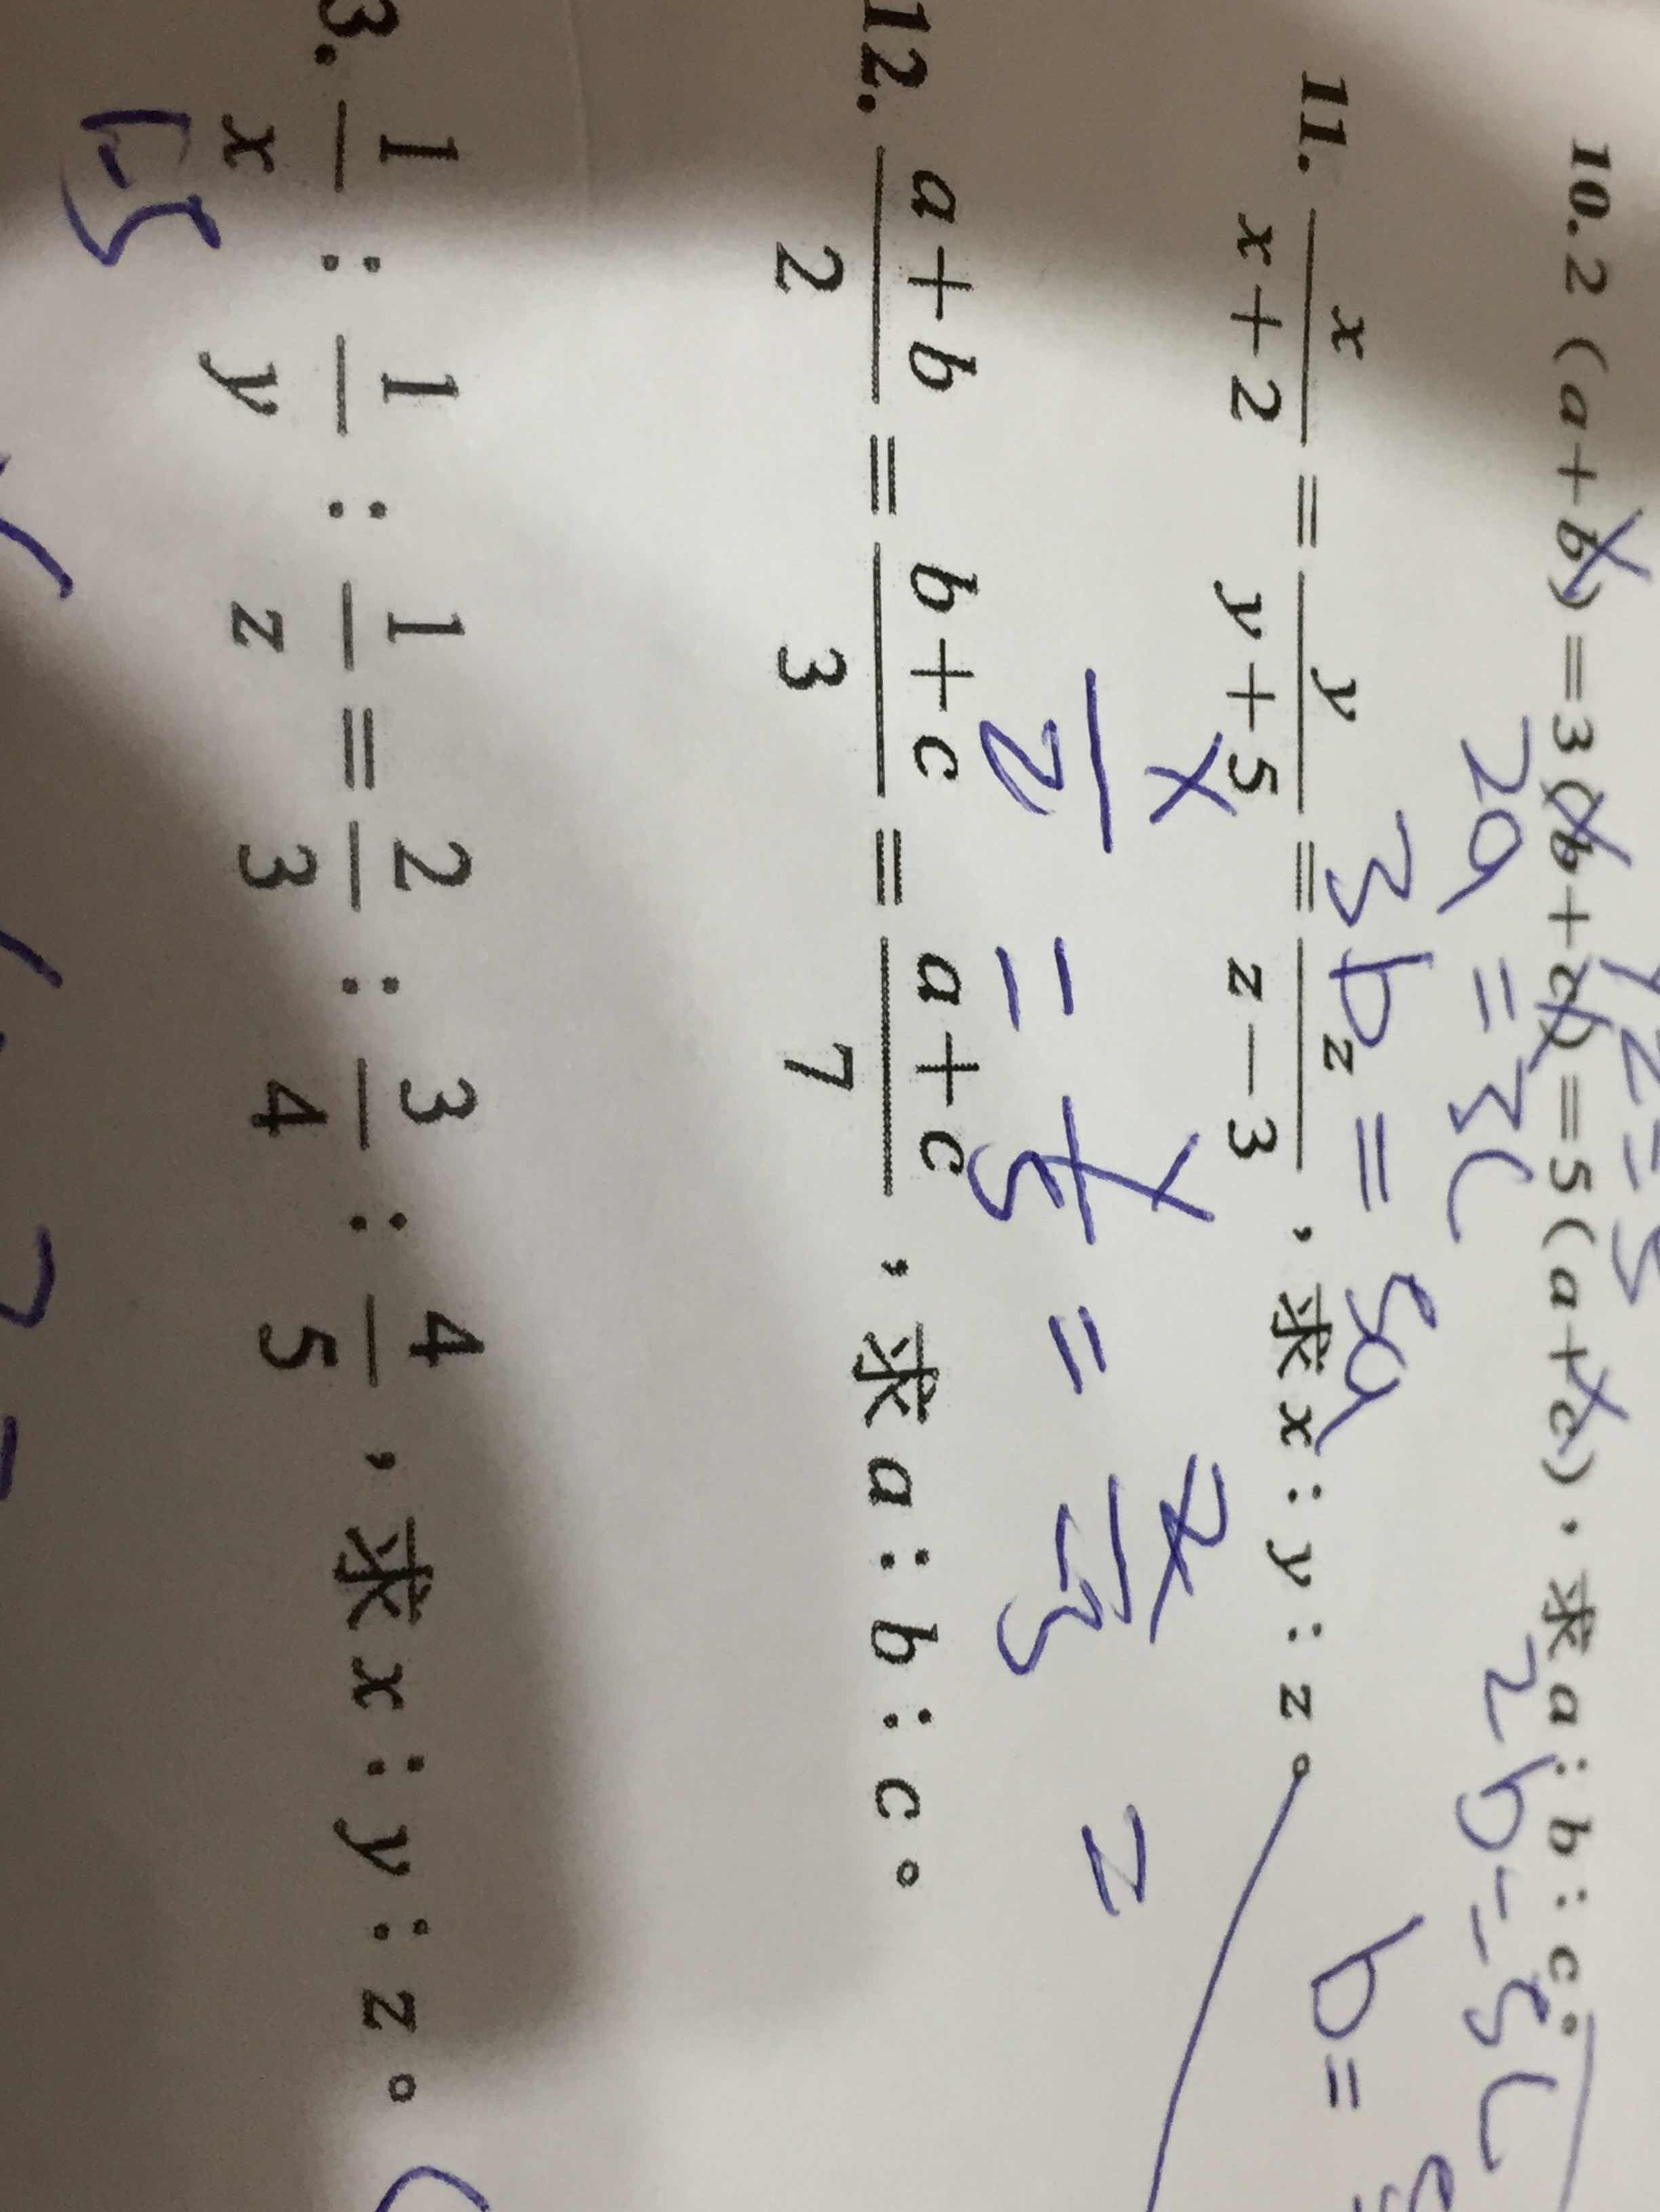 10. 2(a+b)=3(b+c)=5(a+c),求a:b:c。
2a=3c
2b=5c
3b=5a
b=
11. x/(x+2)=y/(y+5)=z/(z-3),求x:y:z。
x/2=y/5=z/-3
12. (a+b)/2=(b+c)/3=(a+c)/7,求a:b:c。
3. 1/x:1/y:1/z=2/3:3/4:4/5,求x:y:z。